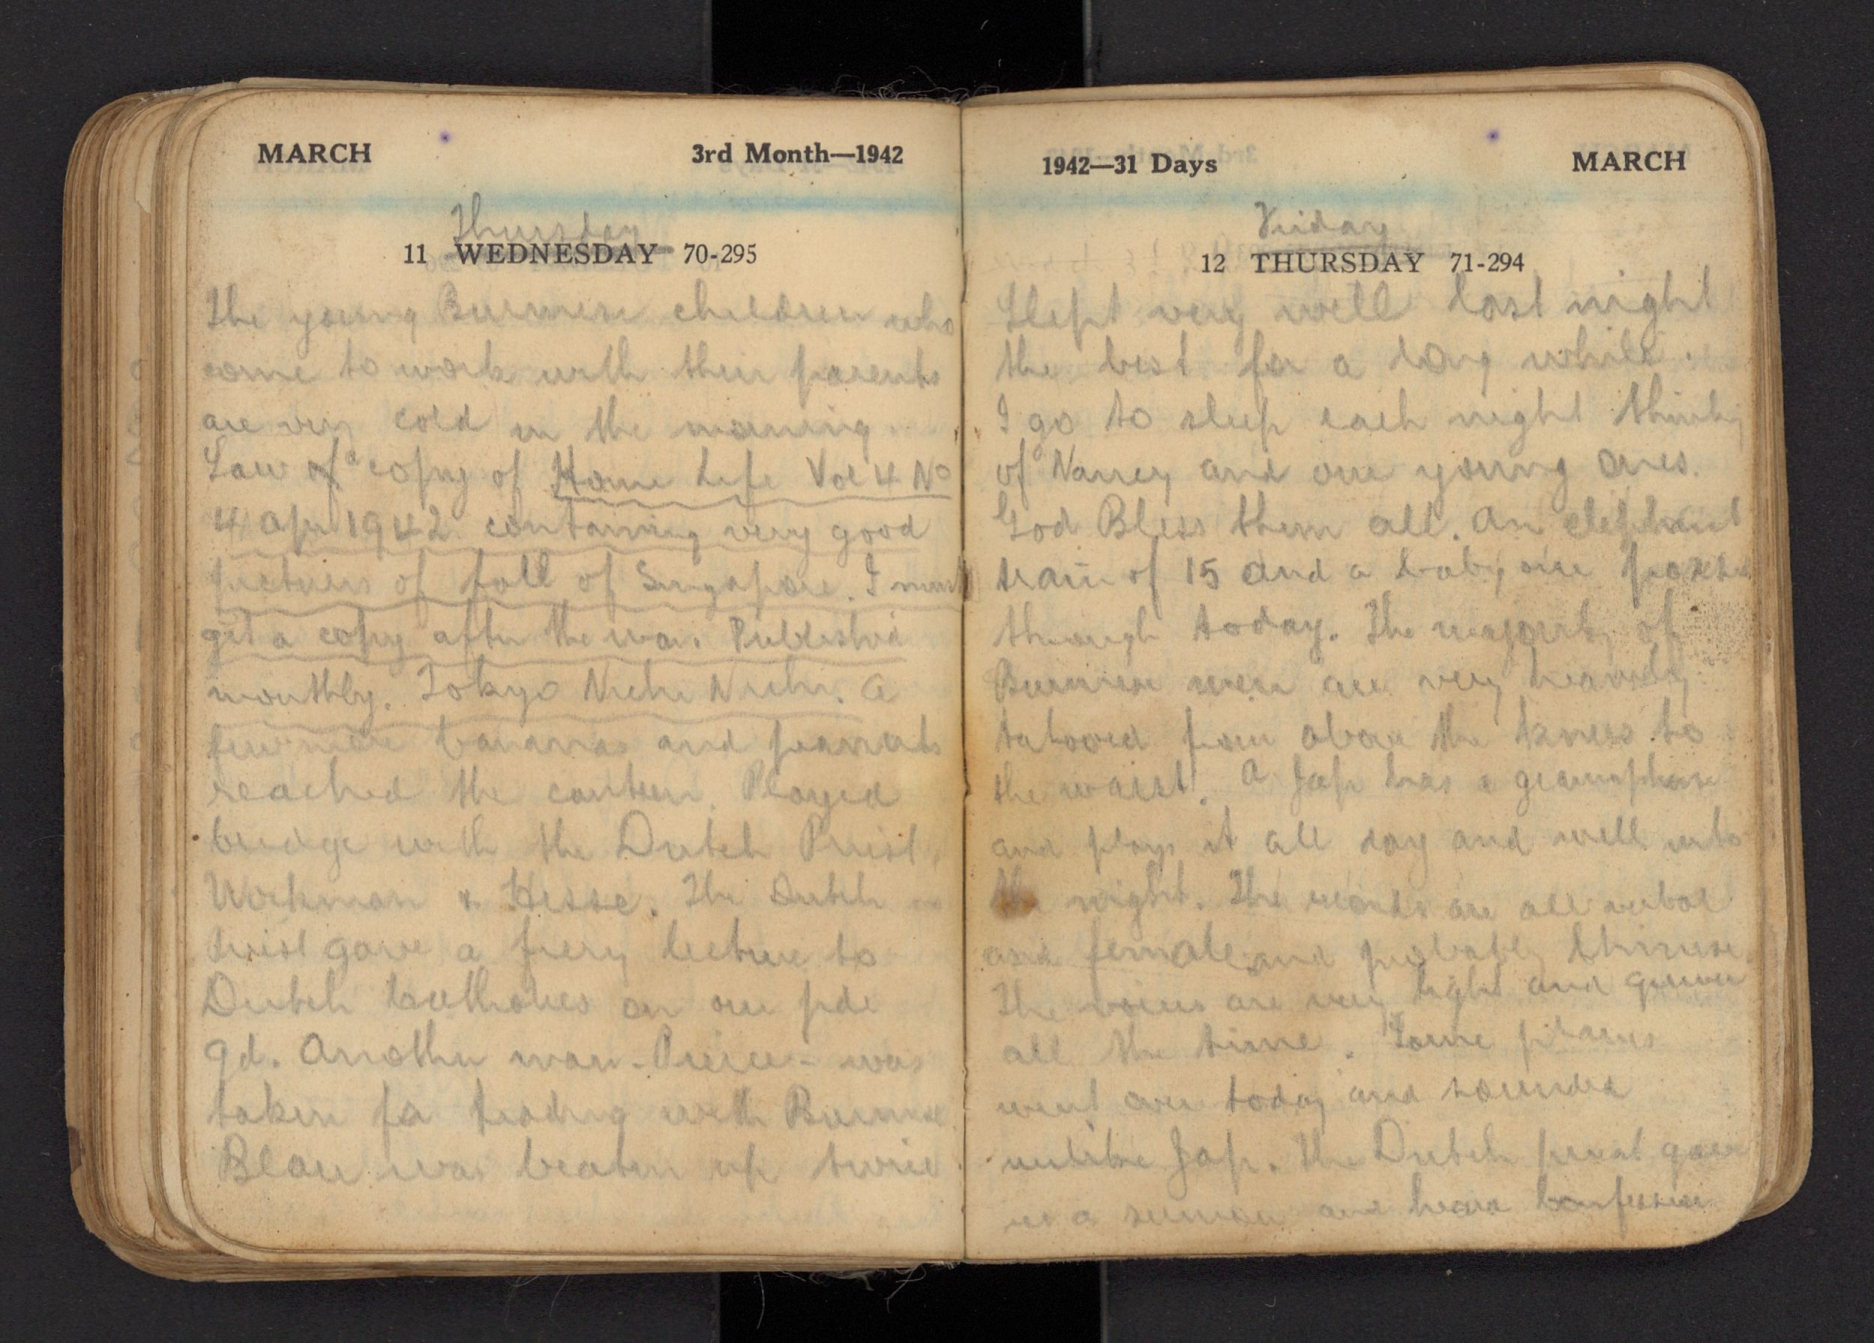 MARCH 3rd Month—1942
Thursday
11 WEDNESDAY 70-295
The young Burmese children who
come to work with their parents
are very cold in the morning.
Saw of a copy of Home Life Vol 4 No
4 Apr 1942. containing very good
pictures of fall of Singapore. I must
get a copy after the war. Published
monthly. Tokyo Nichi Nichi. A
few more bananas and peanuts
reached the canteen. Played
bridge with the Dutch Priest,
Workman & Hesse. The Dutch
Priest gave a fiery lecture to
Dutch Catholics on our pde
gd. Another man - Pierce - was
taken for trading with Burmese
Blow was beaten up twice
1942—31 Days MARCH
Friday
12 THURSDAY 71-294
Slept very well last night
the best for a long while.
I go to sleep each night thinking
of Nancy and our young ones.
God Bless them all. An elephant
train of 15 and a baby one passed
through today. The majority of
Burmese men are very heavily
tatooed from above the knees to
the waist. A Jap has a gramophone
and plays it all day and well into
the night. The records are all verbal
and female and probably Chinese.
The voices are very high and quiver
all the time. Some planes
went over today and sounded
unlike Jap. The Dutch priest gave
us a sermon and heard confession